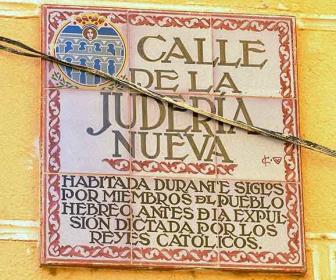 CALLE
DE LA
JUDERIA
NUEVA
HABITADA DURANTE SIGLOS
POR MIEMBROS DEL PUEBLO
HEBREO ANTES D LA EXPUL-
SIÓN DICTADA POR LOS
REYES CATÓLICOS.